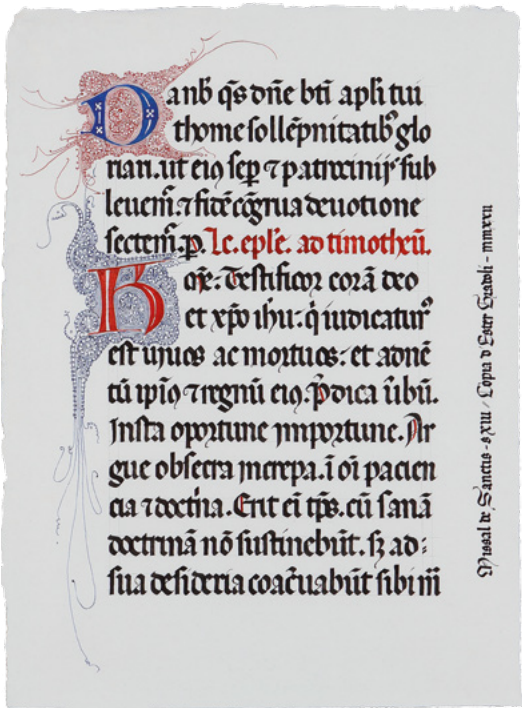 Danb̄ q̄s dn̄e bt̄i apl̄i tui
thome sollēpnitatib⁹ glo
riari. ut ei⁹ sēp ⁊ patrocinijs sub
leuem̄. ⁊ fidē cōgrua deuotione
sectem̄. p. Lc. epl̄e. ad timotheū.
Kar̄e. Testificor corā deo
et xp̄o ih̄u: q̄ iudicatur⁹
est uiuos ac mortuos: et aduē
tū ip̄i⁹ ⁊ regnū ei⁹. p̄dica ūbū.
Insta oportune importune. Ar
gue obsecra increpa. ī oī pacien
cia ⁊ doctrīa. Erit eī tp̄s. cū sanā
doctrinā nō sustinebūt. sꝫ ad
sua desideria coac̄uabūt sibi m̄
Missal de Sanctus - s XIII / Còpia d'Ester Gradolí - mmxxii